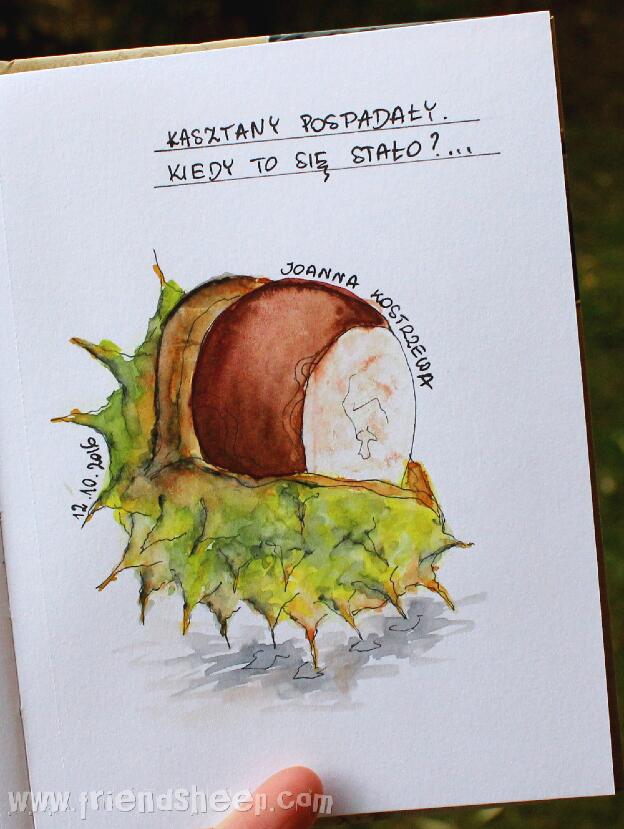 KASZTANY POSPADAŁY.
KIEDY TO SIĘ STAŁO?...
JOANNA KOSTRZEWA
12.10.2016
www.friendsheep.com